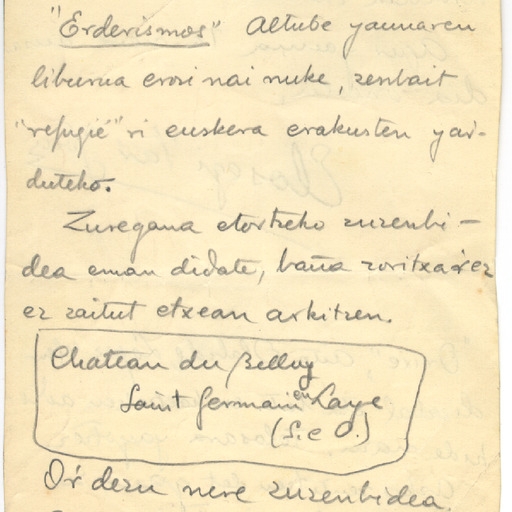 "Erderismos" Altube yaunaren
liburua erosi nai nuke, zenbait
"refugié" ri euskera erakusten yar-
duteko.
Zuregana etortzeko zuzenbi-
dea eman didate, baña zoritxar̃ez
ez zaitut etxean arkitzen.
Chateau du Belloy
Saint Germain en Laye
(S. e O.)
Or̃ dezu nere zuzenbidea